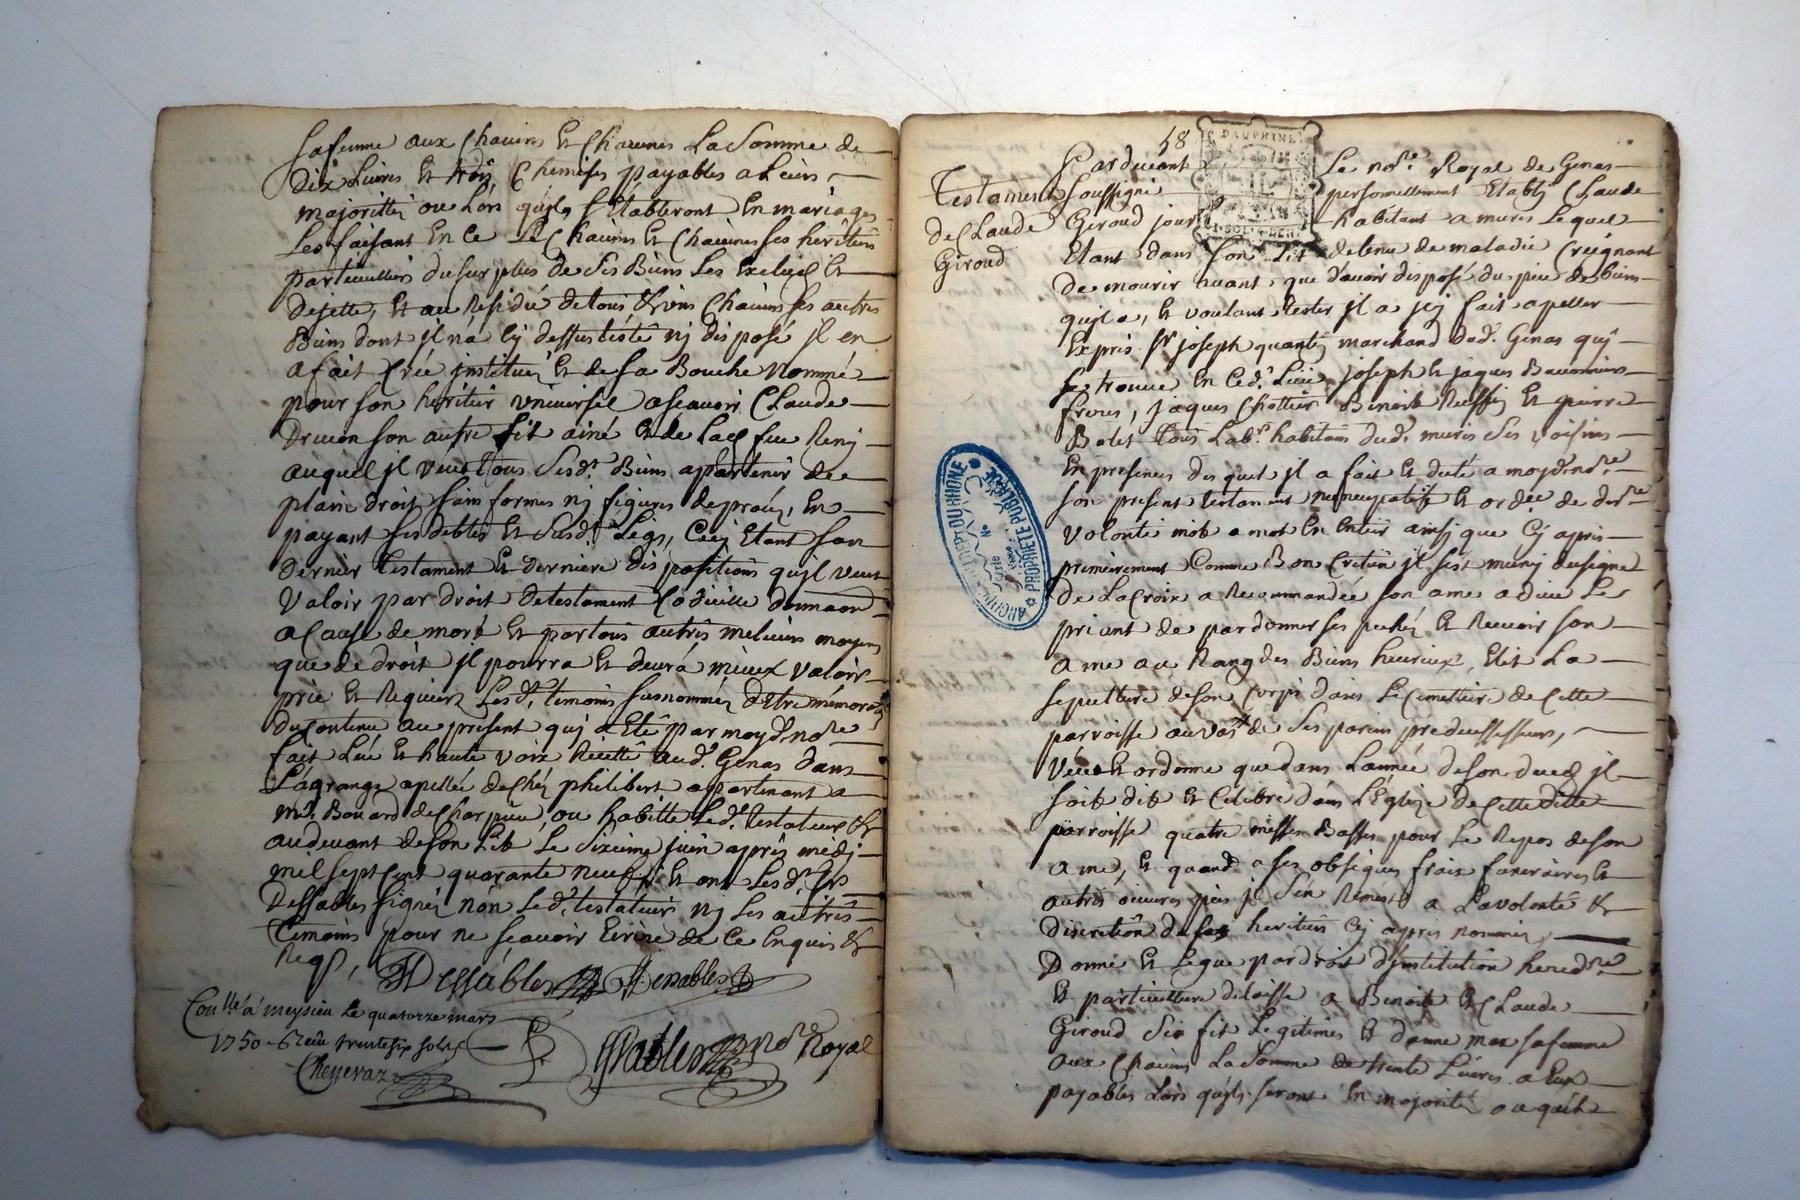 sa femme aux Chacuns Et Chacunes La Somme de
Dix Livres Et trois Chemises payables a Leurs
majorittés ou Lors quils s'Etabliront En mariages
Les faisant En Ce Les Chacuns Et Chacunes ses heritiers
particulliers du surplus de ses Biens Les Exclud Et
Dejette, Et au Residu de tous Et uns Chacuns ses autres
Biens dont jl n'a Cy dessus testé nj disposé jl en
a fait Créé jnstitué Et de sa Bouche Nommé
pour son heritier universel asçavoir Claude
Drivon son autre fil ainé Et de Lad. feue
auquel jl veut tous sesd.ts Biens apartenir de
plain droit sans formes nj figures de procés, En
payant ses debtes Et susd.ts Legs, Cecy Etant son
Dernier testament Et derniere dispositions qujl veut
Valoir par droit de testament Codicille donnaon
a Cause de mort Et par tous autres melieurs moyens
que de droit jl pourra Et devra mieux Valoir
prie Et Requiert Lesd.ts temoins susnommés d'Etre mémoratifs
du Contenu au present qui a Eté par moyd. no.re
fait Lu Et haute voix Recitté aud. Genas dans
La grange apellée de Chés philibert appartenant a
mr. Bonard de Charpieu, ou habitte Led. testateur &
au devant de son Lit Le Sixieme juin après midj
mil sept Cent quarante neuf Et ont Lesd. srs
Dessables signés non Led. testateur nj Les autres
temoins pour ne sçavoir Ecrire de Ce Enquis &
Req.s,
Dessables Dessables
Con.llé a meysieu Le quatorze mars
1750 Reçu trente six sols
Cheyevaz
Dessables no.re Royal
58
DAUPHINE
Testament
de Claude
Giroud
Pardevant Le no.re Royal de Genas
soussigné personnellement Etably Claude
Giroud jour habitant a mures Lequel
Etant dans son Lit detenu de maladie Creignant
De mourir avant que d'avoir disposé du peu de biens
qujl a, Et voulant tester jl a jcy fait apeller
Expris sr joseph quantin marchand dud. Genas quj
se trouve En Ced. Lieu joseph Et jaques Bavonniers
freres, jaques Chottier Benoit Et pierre
Bolet tous Lab.rs habitans dud. mures ses voisins
En presences des quel jl a fait Et dicté a moyd. no.re
son present testament nuncupatif Et ord.ce de der.re
Volonté mot a mot En Entier ainsj que Cy après
premierement Comme Bon Cretien jl s'est munj du signe
De La Croix a Recommandée son ame a dieu Le
priant de pardonner ses pechés Et Recevoir son
ame au Rang des Biens heureux, Elit La
sepulture de son Corps dans Le Cimettiere de Cette
parroisse au vas de ses parens prédecessesseurs,
Veut Et ordonne que dans L'année de son deced jl
soit dit Et Celebré dans L'Eglize de Cette ditte
parroisse quatre messes Basses pour Le Repos de son
ame, Et quand a ses obseques fraix funeraires Et
autres œuvres pies jl s'En Remest a La volonté &
Discretion de ses heritiers Cy aprés nommés,
Donne Et Legue par droit d'jnstitution hered.re
Et particulliere delaisse a Benoit Et Claude
Giroud ses fil Legitimes Et donne mar sa femme
aux Chacuns La Somme de trente Livres a Eux
payables Lors qujls seront En majorité ou qu'ils
PROPRIETE PUBLIQUE